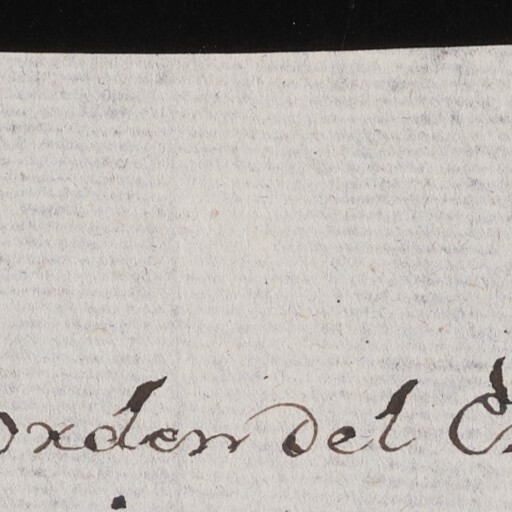 orden del